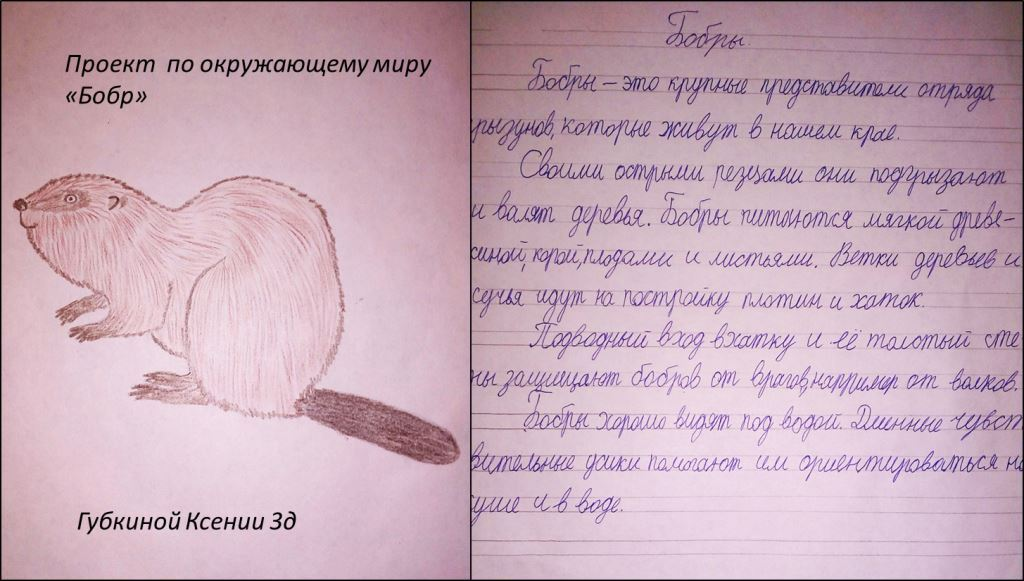 Проект по окружающему миру
«Бобр»
Губкиной Ксении 3д
Бобры.
Бобры – это крупные представители отряда
рызунов, которые живут в нашем крае.
Своими острыми резцами они подгрызают
и валят деревья. Бобры питаются мягкой древе-
синой, корой, плодами и листьями. Ветки деревьев и
сучья идут на постройку плотин и хаток.
Подводный вход в хатку и её толстый сте
ны защищают бобров от врагов, например от волков.
Бобры хорошо видят под водой. Длинные чувст
вительные усики помогают им ориентироваться на
суше и в воде.